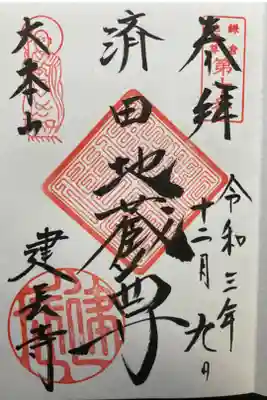 奉拝
令和三年
十二月九日
済田地蔵尊
大本山
建長寺